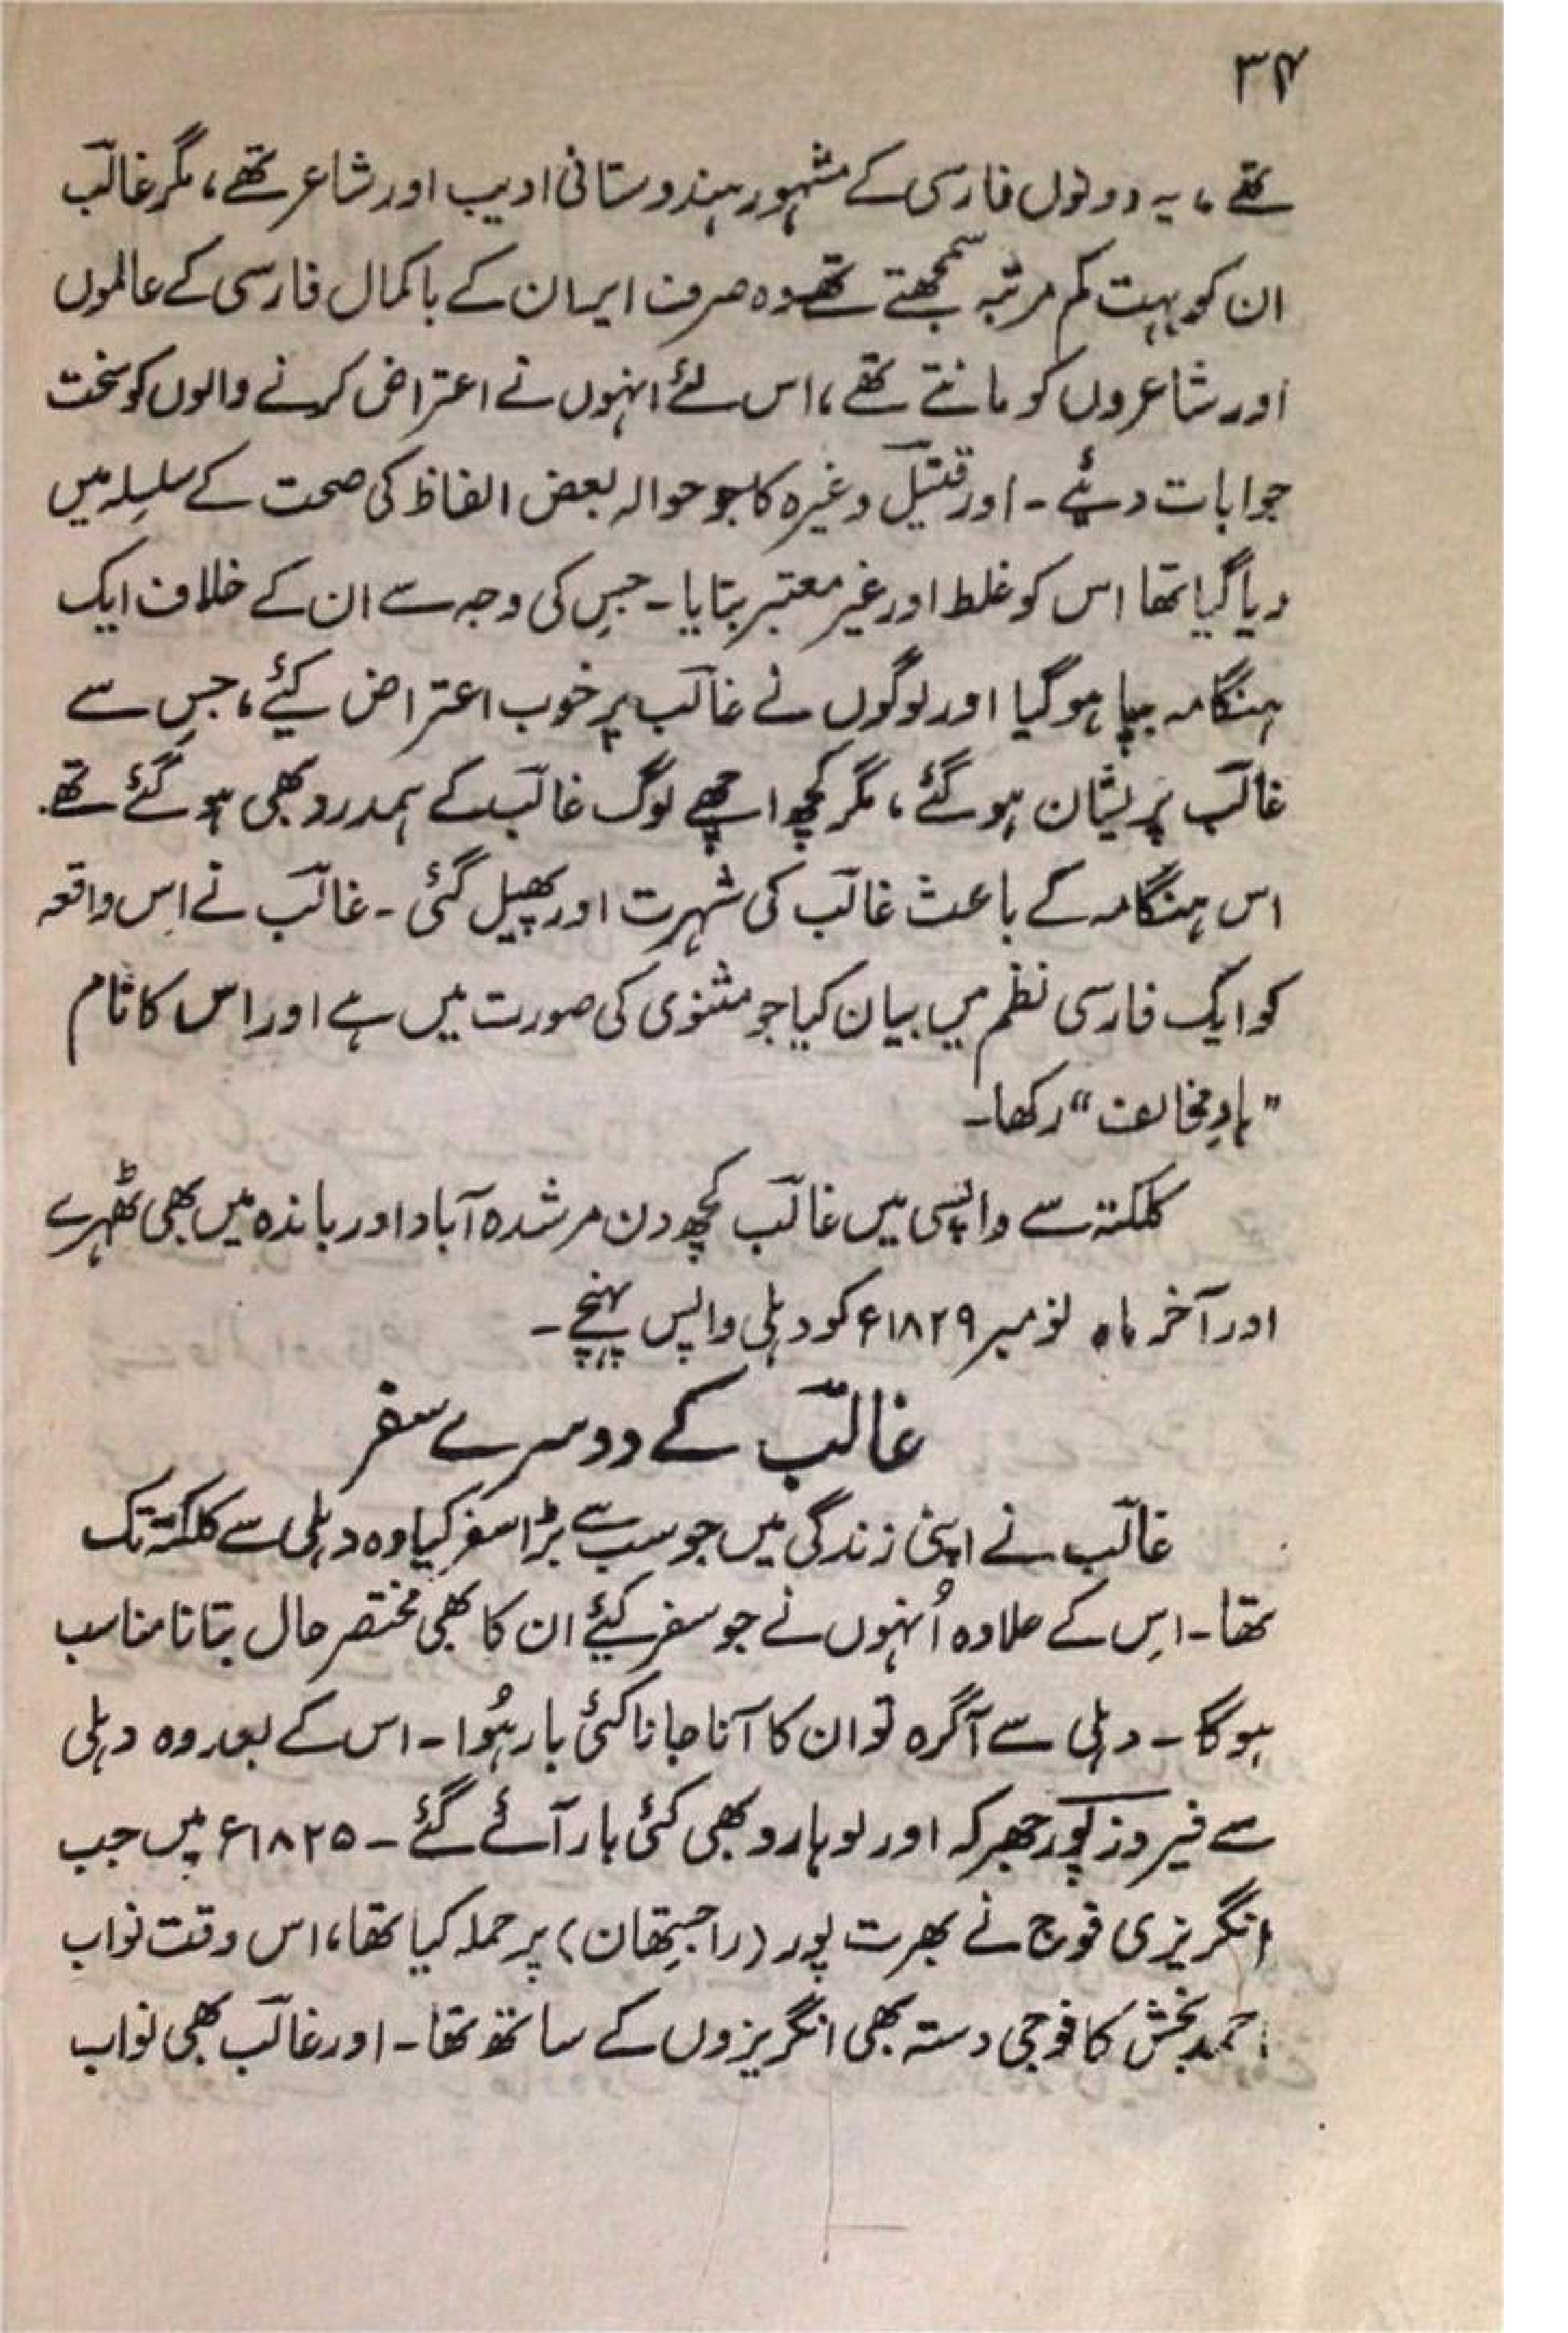 ۳۴
تھے، یہ دونوں فارسی کے مشہور ہندوستانی ادیب اور شاعر تھے، مگر غالبؔ
ان کو بہت کم مرتبہ سمجھتے تھے وہ صرف ایران کے با کمال فارسی کے عالموں
اور شاعروں کو مانتے تھے، اس لئے انہوں نے اعتراض کرنے والوں کو سخت
جوابات دیئے ۔ اور قتیلؔ وغیرہ کا جو حوالہ بعض الفاظ کی صحت کے سلسلہ میں
دیا گیا تھا اس کو غلط اور غیر معتبر بتایا ۔ جس کی وجہ سے ان کے خلاف ایک
ہنگامہ بپا ہو گیا اور لوگوں نے غالبؔ پر خوب اعتراض کیئے، جس سے
غالبؔ پریشان ہو گئے، مگر کچھ اچھے لوگ غالبؔ کے ہمدرد بھی ہو گئے تھے.
اس ہنگامہ کے باعث غالبؔ کی شہرت اور پھیل گئی ۔ غالبؔ نے اِس واقعہ
کو ایک فارسی نظم میں بیان کیا جو مثنوی کی صورت میں ہے اور اس کا نام
”بادِ مخالف“ رکھا۔
کلکتہ سے واپسی میں غالبؔ کچھ دن مرشدہ آباد اور باندہ میں بھی ٹھہرے
اور آخر ماہ نومبر ۱۸۲۹ء کو دہلی واپس پہنچے ۔
غالبؔ کے دوسرے سفر
غالبؔ نے اپنی زندگی میں جو سب سے بڑا سفر کیا وہ دہلی سے کلکتہ تک
تھا ۔ اِس کے علاوہ اُنہوں نے جو سفر کیئے ان کا بھی مختصر حال بتانا مناسب
ہوگا ۔ دہلی سے آگرہ تو ان کا آنا جانا کئی بار ہُوا ۔ اس کے بعد وہ دہلی
سے فیروز پور جھرکہ اور لوہارو بھی کئی بار آئے گئے ۔ ۱۸۲۵ء میں جب
انگریزی فوج نے بھرت پور (راجستھان) پر حملہ کیا تھا، اس وقت نواب
احمد بخش کا فوجی دستہ بھی انگریزوں کے ساتھ تھا ۔ اور غالبؔ بھی نواب